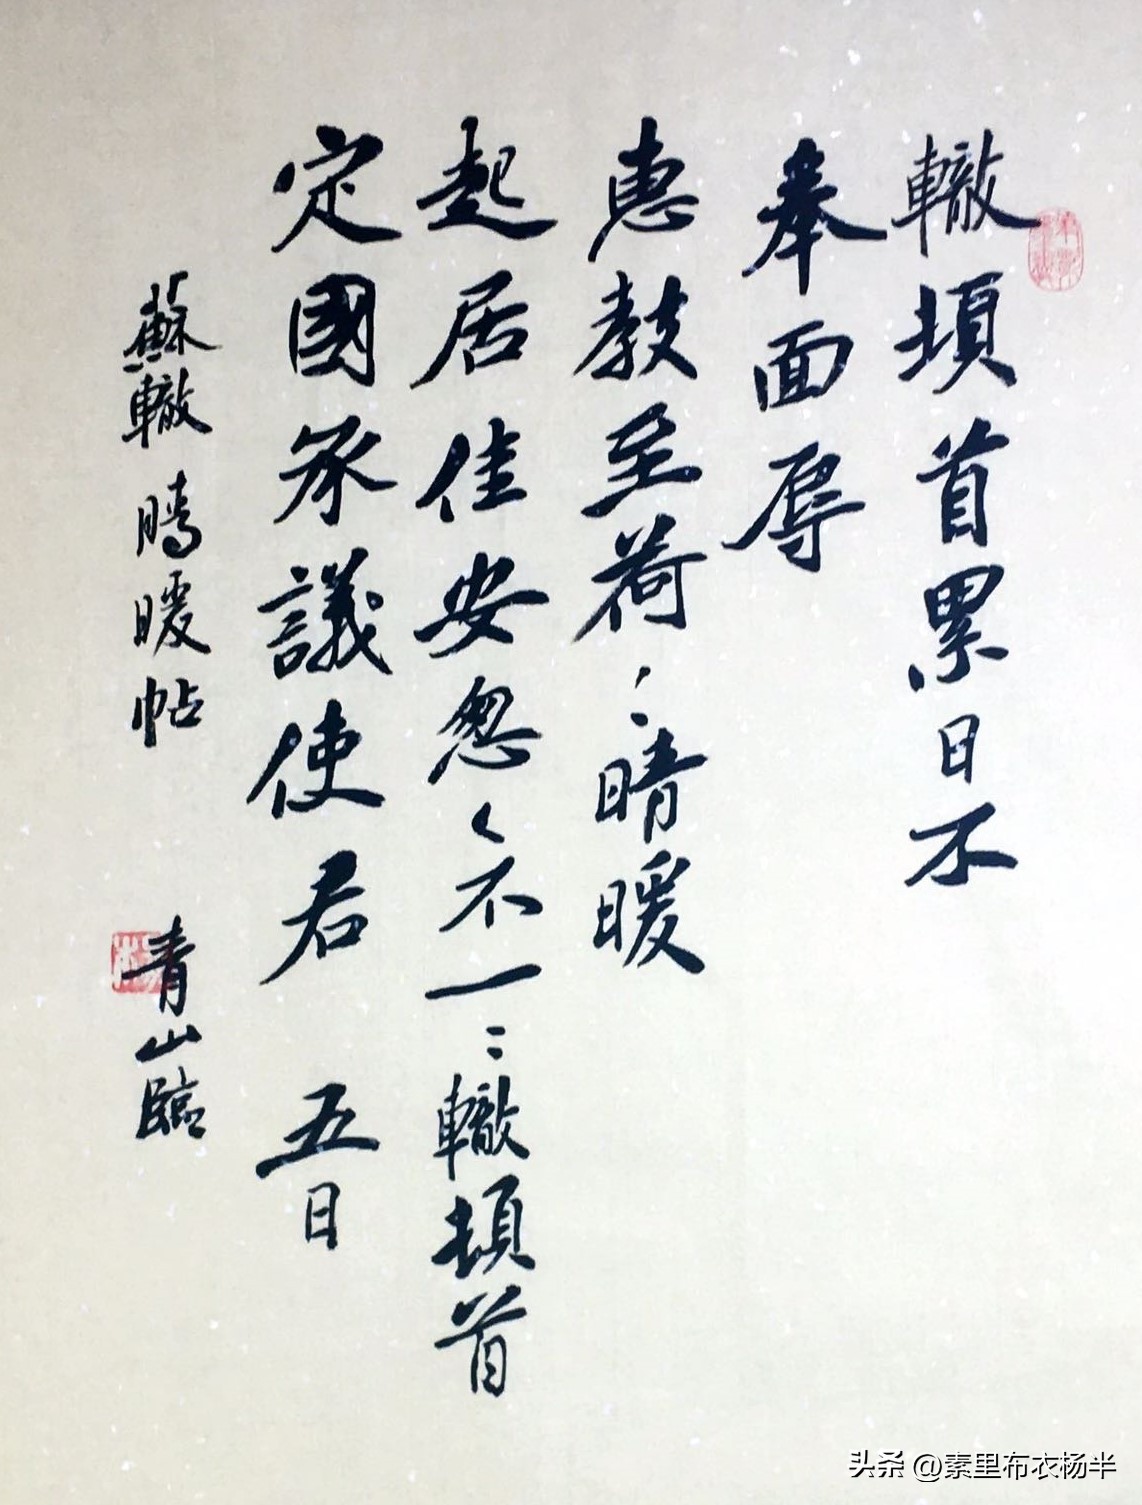 轍頓首累日不
奉面辱
惠教至荷〻晴暖
起居佳安怱〻不一〻轍頓首
定國承議使君 五日
蘇轍晴暖帖 青山臨
头条 @素里布衣杨半